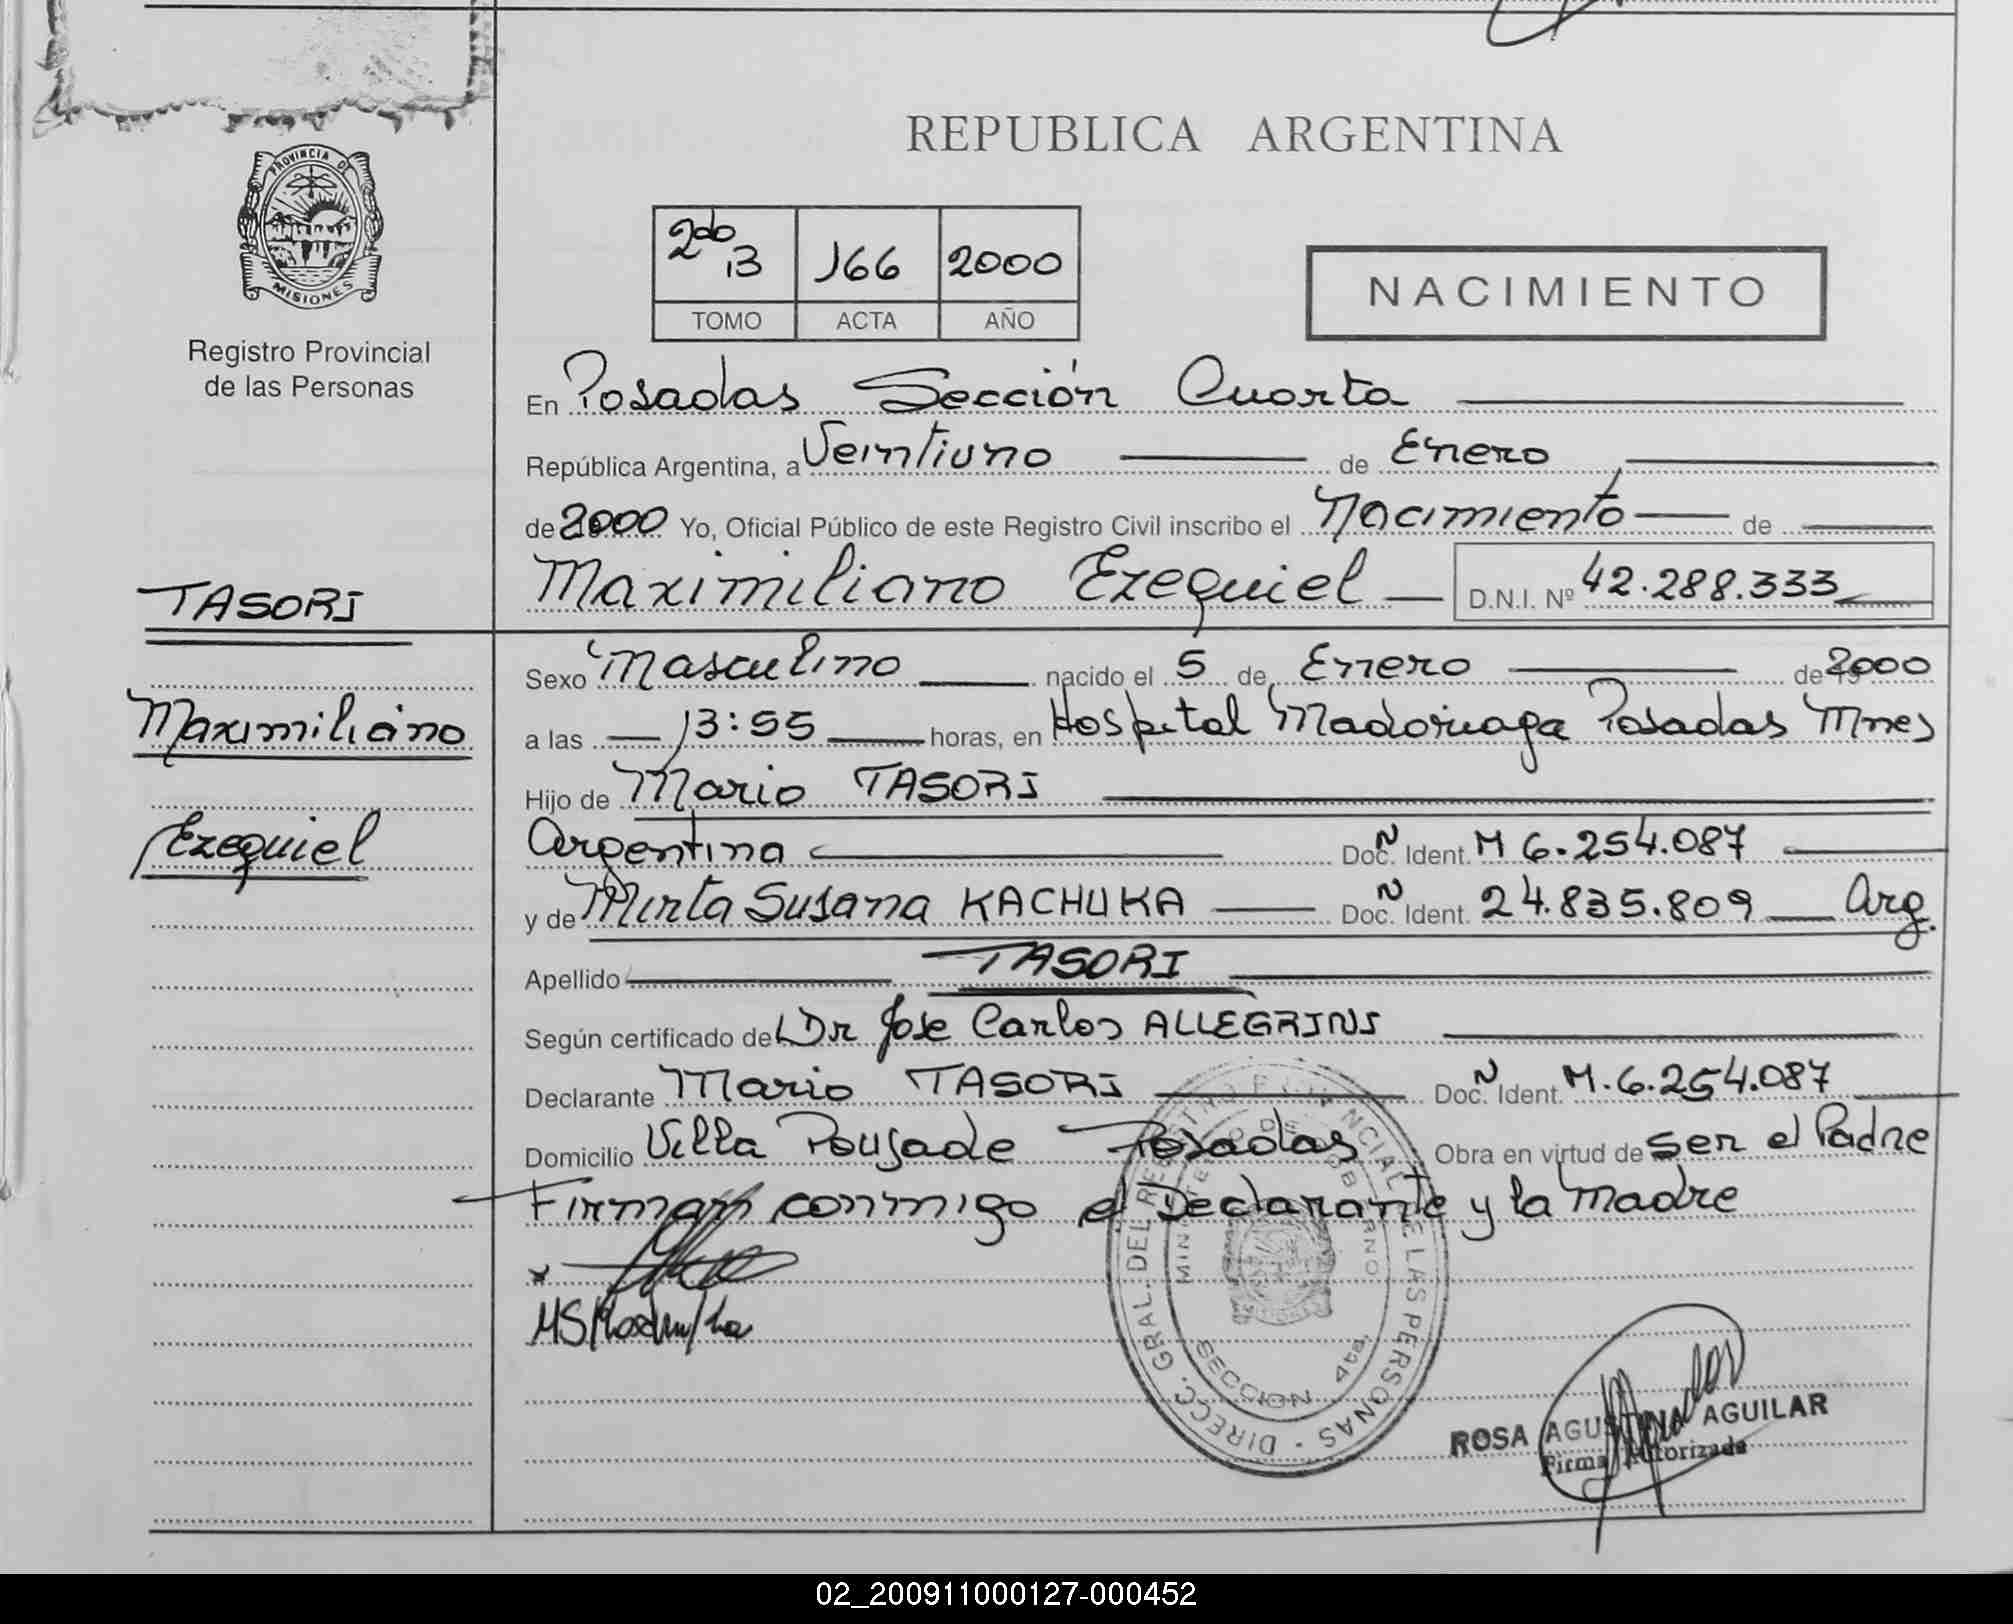 REPUBLICA ARGENTINA
PROVINCIA DE
MISIONES
Registro Provincial
de las Personas
2do 13 166 2000
TOMO ACTA AÑO
NACIMIENTO
En Posadas Sección Cuarta
República Argentina, a Veintiuno de Enero
de 2000 Yo, Oficial Público de este Registro Civil inscribo el Nacimiento de
Maximiliano Ezequiel D.N.I. Nº 42.288.333
TASORI
Maximiliano
Ezequiel
Sexo Masculino nacido el 5 de Enero de 2000
a las 13:55 horas, en Hospital Madariaga Posadas Mnes
Hijo de Mario TASORI
Argentina Doc. N Ident. M 6.254.087
y de Mirta Susana KACHUKA Doc. N Ident. 24.835.809 Arg.
Apellido TASORI
Según certificado de Dr Jose Carlos ALLEGRINI
Declarante Mario TASORI Doc. N Ident. M.6.254.087
Domicilio Villa Poujade Posadas Obra en virtud de ser el Padre
Firman conmigo el Declarante y la Madre
DIRECC. GRAL. DEL REGISTRO PROVINCIAL DE LAS PERSONAS
MINISTERIO DE GOBIERNO
SECCION 4ta.
ROSA AGUSTINA AGUILAR
Firma Autorizada
02_200911000127-000452